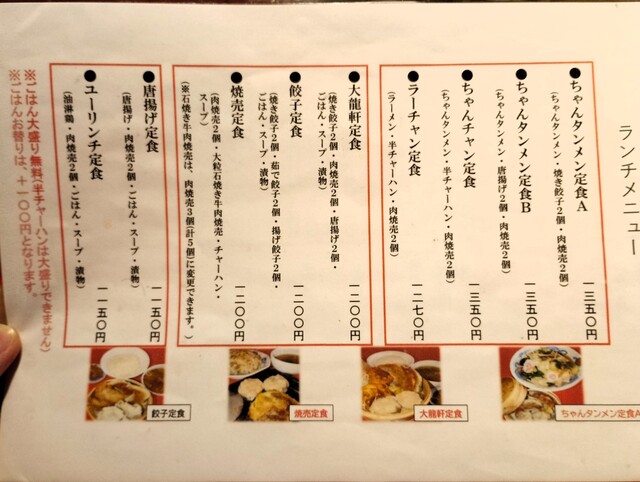 ランチメニュー
●ちゃんタンメン定食A
(ちゃんタンメン・焼き餃子2個・肉焼売2個)
一三五〇円
●ちゃんタンメン定食B
(ちゃんタンメン・唐揚げ2個・肉焼売2個)
一三五〇円
●ちゃんチャン定食
(ちゃんタンメン・半チャーハン・肉焼売2個)
一三五〇円
●ラーチャン定食
(ラーメン・半チャーハン・肉焼売2個)
一二七〇円
●大龍軒定食
(焼き餃子2個・肉焼売2個・唐揚げ2個・
ごはん・スープ・漬物)
一二〇〇円
●餃子定食
(焼き餃子2個・茹で餃子2個・揚げ餃子2個・
ごはん・スープ・漬物)
一二〇〇円
●焼売定食
(肉焼売2個・大粒石焼き牛肉焼売・チャーハン・
スープ)
(※石焼き牛肉焼売は、肉焼売3個(計5個)に変更できます。)
一二〇〇円
●唐揚げ定食
(唐揚げ・肉焼売2個・ごはん・スープ・漬物)
一一五〇円
●ユーリンチ定食
(油淋鶏・肉焼売2個・ごはん・スープ・漬物)
一一五〇円
※ごはん大盛り無料(半チャーハンは大盛りできません)
※ごはんお替りは、+一〇〇円となります。
餃子定食
焼売定食
大龍軒定食
ちゃんタンメン定食A